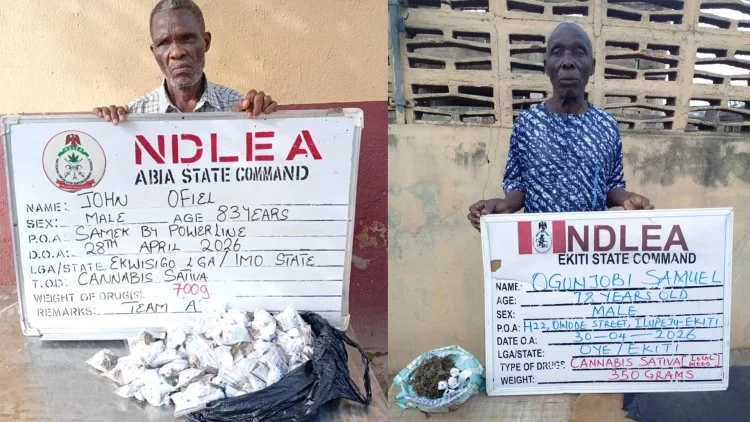 NDLEA
ABIA STATE COMMAND
NAME: JOHN OFIEL
SEX: MALE AGE 83 YEARS
P.O.A: SAMEK BY POWERLINE
D.O.A: 28TH APRIL 2026
LGA/STATE EKWISIGO LGA/ IMO STATE
T.O.D: CANNABIS SATIVA
WEIGHT OF DRUG(S) 700g
REMARKS: TEAM 'A'
NDLEA
EKITI STATE COMMAND
NAME: OGUNJOBI SAMUEL
AGE: 78 YEARS OLD
SEX: MALE
P.O.A: H22, OWODE STREET, ILUPEJU-EKITI
DATE O.A: 30-04-2026
LGA/STATE: OYE/EKITI
TYPE OF DRUGS CANNABIS SATIVA [LOCAL WEED]
WEIGHT: 350 GRAMS